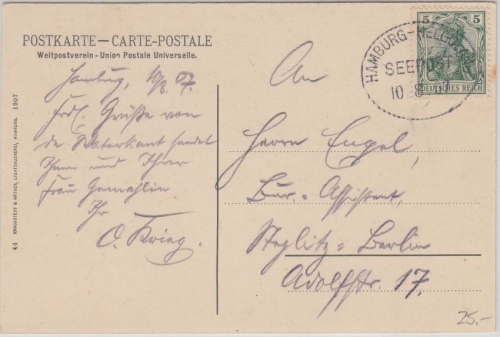 POSTKARTE — CARTE-POSTALE
Weltpostverein - Union Postale Universelle.
Hamburg, 10/8 07.
Frdl. Grüße von
de Waterkant sendet
Ihnen und Ihrer
Frau Gemahlin
Ihr
O. Krieg.
KNACKSTEDT & NÄTHER, LICHTDRUCKEREI, HAMBURG. 1907
44
HAMBURG-HELGOLAND
SEEPOST
10 8 07
5 5
DEUTSCHES REICH
An
Herrn Engel,
Bur.-Assistent,
Steglitz-Berlin
Adolfstr. 17.
25.-